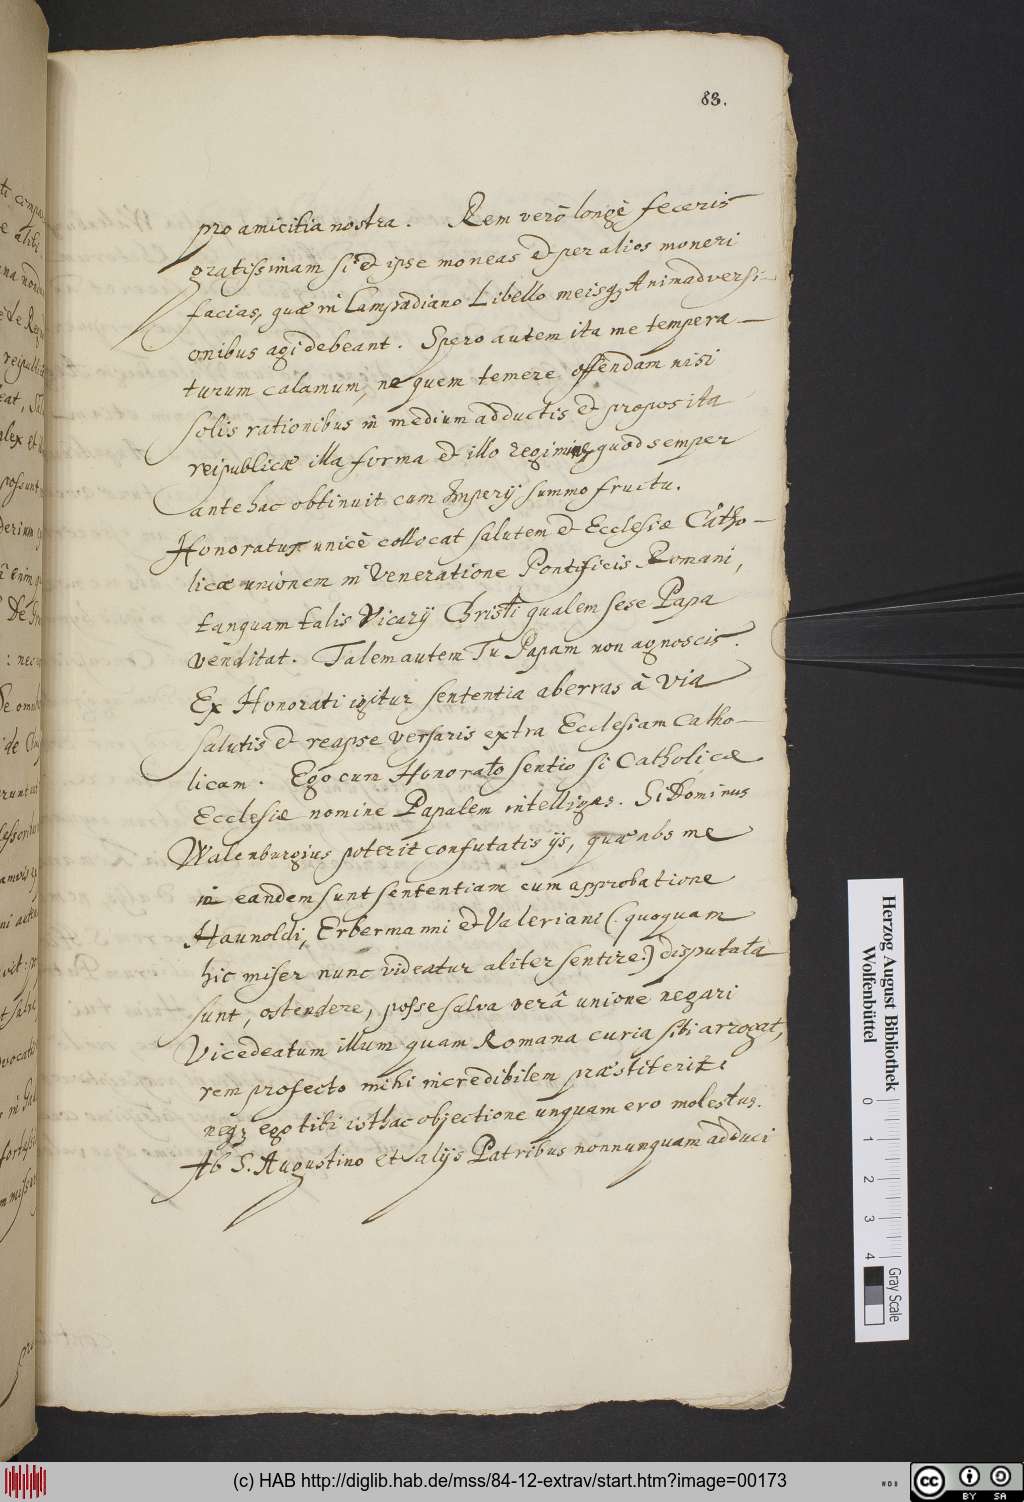 83.
pro amicitia nostra. Rem verò longè feceris
gratissimam si et ipse moneas et per alios moneri
facias, quæ in Lampadiano Libello meisq; Animadversi-
onibus agi debeant. Spero autem ita me tempera-
turum calamum, ne quem temere offendam nisi
solis rationibus in medium adductis et proposita
reipublicæ illa forma et illo regimine quod semper
antehac obtinuit cum Imperij summo fructu.
Honoratus unicè collocat salutem et Ecclesiæ Catho-
licæ unionem in Veneratione Pontificis Romani,
tanquam talis Vicarij Christi qualem sese Papa
venditat. Talem autem Tu Papam non agnoscis.
Ex Honorati igitur sententia aberras â via
salutis et reapse versaris extra Ecclesiam Catho-
licam. Ego cum Honorato sentio si Catholicæ
Ecclesiæ nomine Papalem intelligas. Si Dominus
Walenburgius poterit confutatis ijs, quæ abs me
in eandem sunt sententiam cum approbatione
Haunoldi, Erbermanni et Valeriani (quoquam
hic miser nunc videatur aliter sentire:) disputata
sunt, ostendere, posse salva verâ unione negari
Vicedeatum illum quam Romana curia sibi arrogat,
rem profecto mihi incredibilem præstiterit:
neq; ego tibi isthac objectione unquam ero molestus.
Ab S. Augustino et alijs Patribus nonnunquam adduci
Herzog August Bibliothek
Wolfenbüttel
0 1 2 3 4
Gray Scale
(c) HAB http://diglib.hab.de/mss/84-12-extrav/start.htm?image=00173
cc BY SA